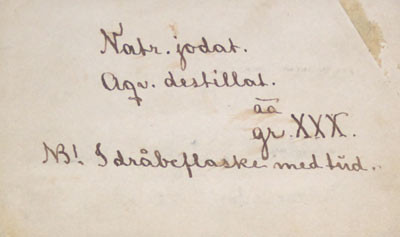 Natr. jodat.
Aqv. destillat.
āā
gr. XXX.
NB! I dråbeflaske med tud.